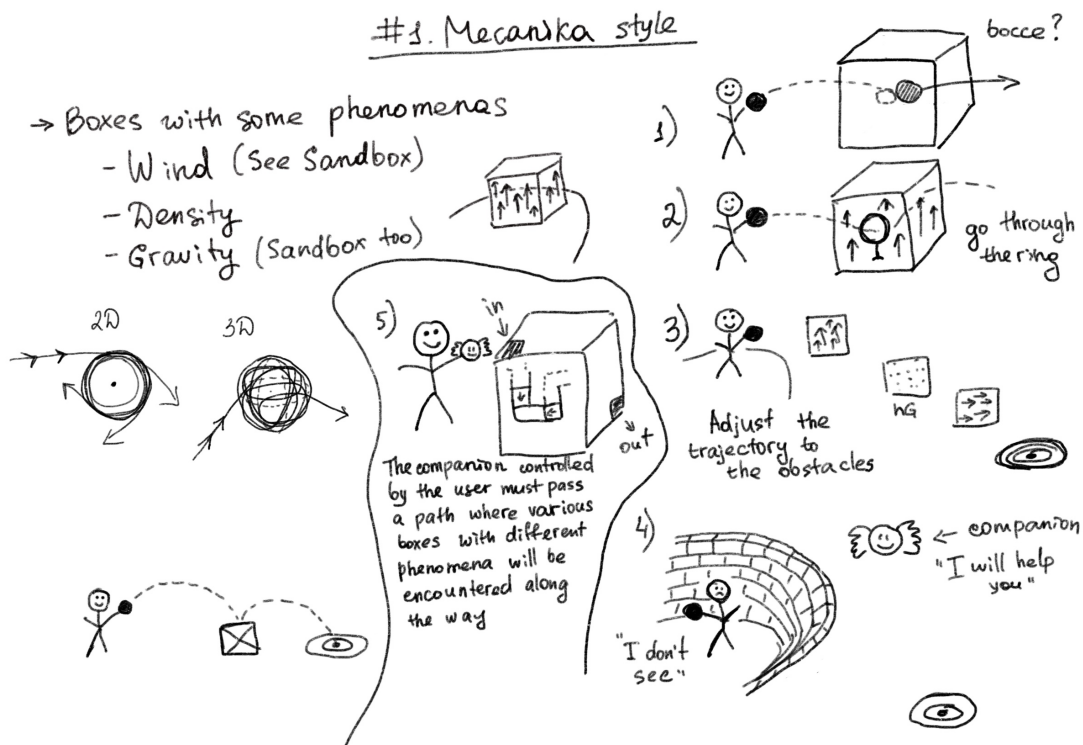 #1. Mecanika style
→ Boxes with some phenomenas
- Wind (See Sandbox)
- Density
- Gravity (Sandbox too)
2D
3D
1)
bocce?
2)
go through
the ring
3)
hG
Adjust the
trajectory to
the obstacles
4)
"I don't
see"
← companion
"I will help
you"
5)
in
out
The companion controlled
by the user must pass
a path where various
boxes with different
phenomena will be
encountered along
the way